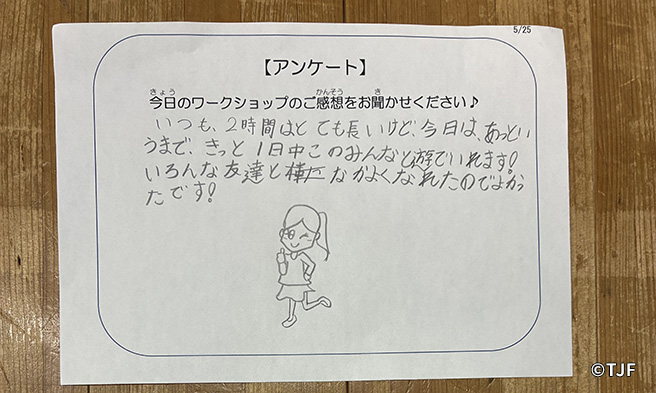 5/25
【アンケート】
今日のワークショップのご感想をお聞かせください♪
いつも、2時間はとても長いけど、今日は、あっとい
うまで、きっと1日中このみんなと遊でいれます!
いろんな友達と なかよくなれたのでよかっ
たです!
©TJF